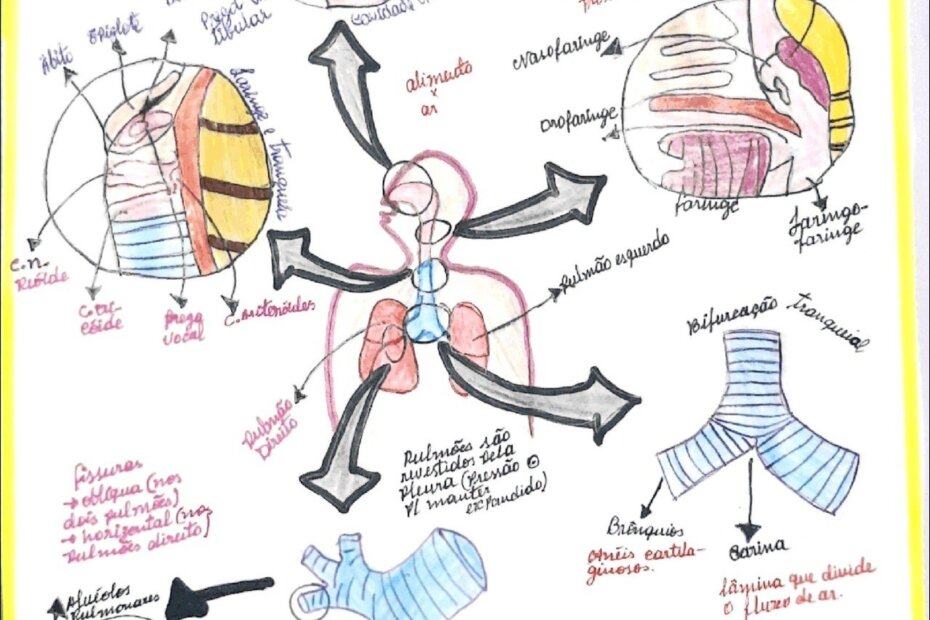 Ádito
Epiglote
Prega ve
tibular
cavidade n
alimento
x
ar
Laringe e traqueia
Nasofaringe
Orofaringe
faringe
Laringo-
faringe
C. cri-
cóide
Prega
vocal
C. aritenóides
Pulmão esquerdo
Pulmão
Direito
Bifurcação traqueial
Pulmões são
revestidos pela
pleura (pressão ⊖
p/ manter
expandido)
fissuras
→ oblíqua (nos
dois pulmões)
→ horizontal (no
pulmões direito)
Brônquios
Anéis cartila-
ginosos.
Carina
lâmina que divide
o fluxo de ar.
Alvéolos
Pulmonares